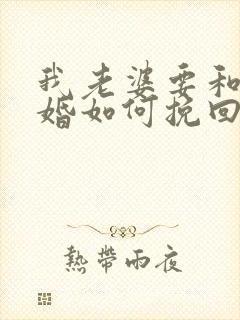 我老婆要和
婚如何挽回
熱帶雨夜